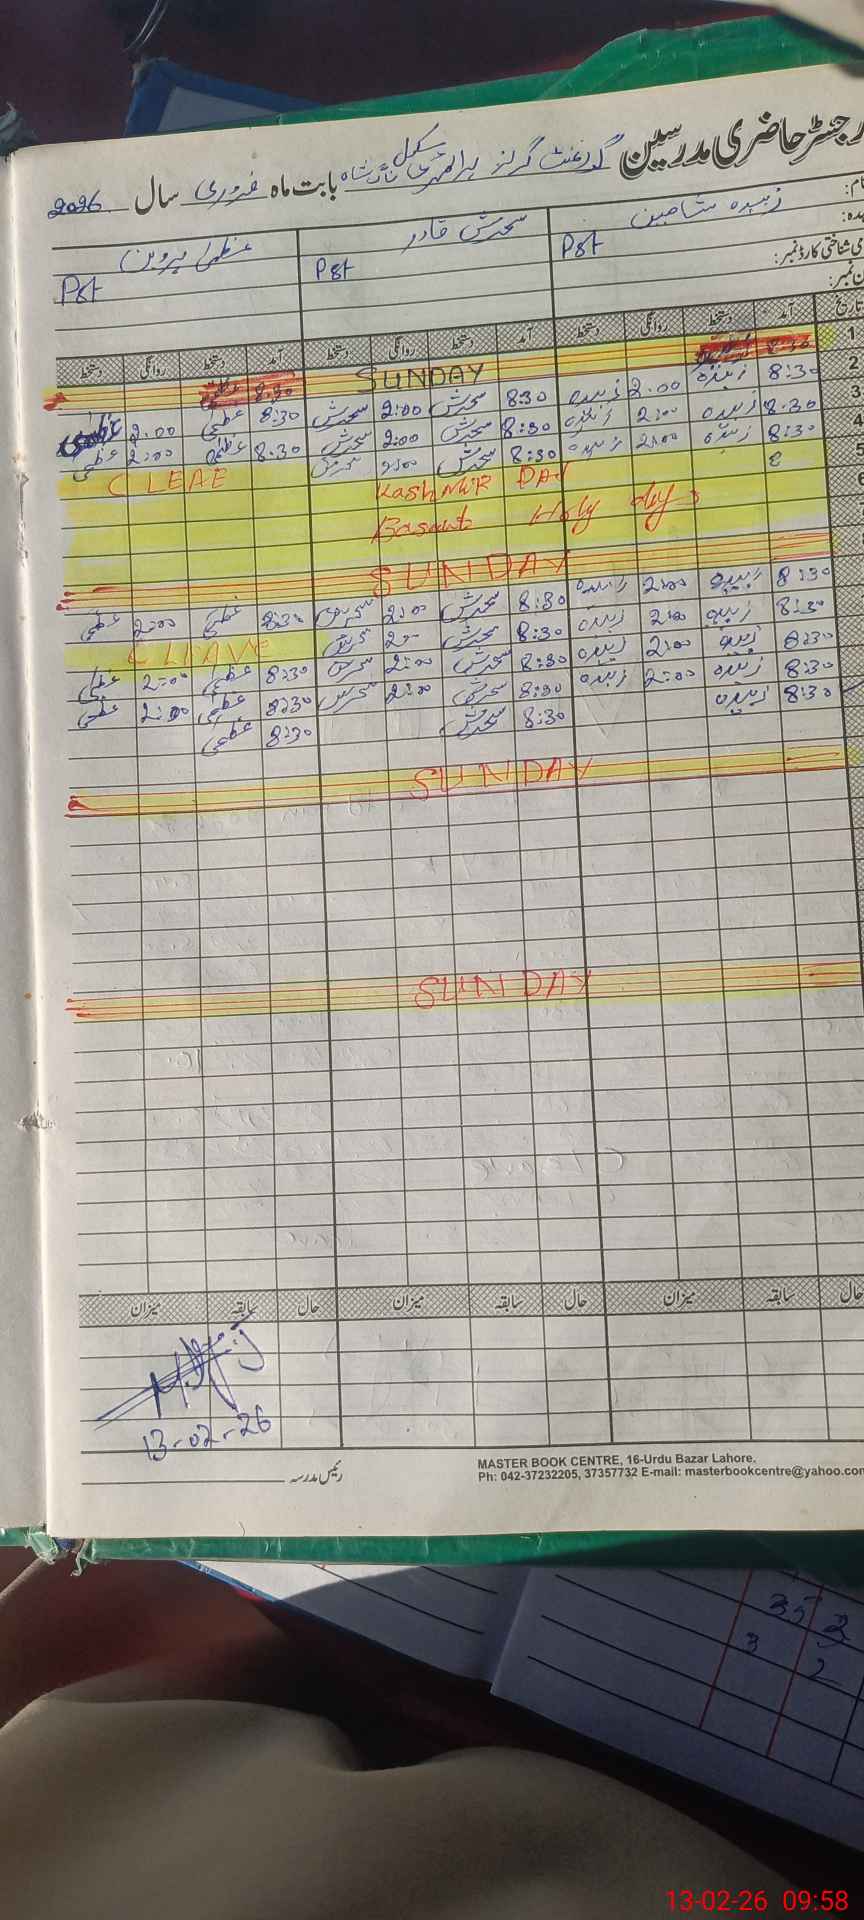 رجسٹر حاضری مدرسین گورنمنٹ گرلز پرائمری سکول بابت ماہ فروری سال 2026
نام: زبیدہ شاہین سحرش قادر عظمیٰ پروین
عہدہ: Pst Pst Pst
شناختی کارڈ نمبر:
تاریخ آمد دستخط روانگی دستخط آمد دستخط روانگی دستخط آمد دستخط روانگی دستخط
1 8:30 SUNDAY 8:30
2 8:30 زبیدہ 2:00 زبیدہ 8:30 سحرش 2:00 سحرش 8:30 عظمیٰ 2:00 عظمیٰ
3 8:30 زبیدہ 2:00 زبیدہ 8:30 سحرش 2:00 سحرش 8:30 عظمیٰ 2:00 عظمیٰ
4 8:30 زبیدہ 2:00 زبیدہ 8:30 سحرش 2:00 سحرش C LEAE
5 8 Kashmir DAY
6 Basant Holy dys
SUNDAY
8:30 زبیدہ 2:00 زبیدہ 8:30 سحرش 2:00 سحرش 8:30 عظمیٰ 2:00 عظمیٰ
8:30 زبیدہ 2:00 زبیدہ 8:30 سحرش 2:00 سحرش C LEAVE
8:30 زبیدہ 2:00 زبیدہ 8:30 سحرش 2:00 سحرش 8:30 عظمیٰ 2:00 عظمیٰ
8:30 زبیدہ 2:00 زبیدہ 8:30 سحرش 2:00 سحرش 8:30 عظمیٰ 2:00 عظمیٰ
8:30 زبیدہ 8:30 سحرش 8:30 عظمیٰ
SUNDAY
SUNDAY
حال سابقہ میزان حال سابقہ میزان حال سابقہ میزان
13-02-26
رئیس مدرسہ
MASTER BOOK CENTRE, 16-Urdu Bazar Lahore.
Ph: 042-37232205, 37357732 E-mail: masterbookcentre@yahoo.com
35
3 2
2
13-02-26 09:58